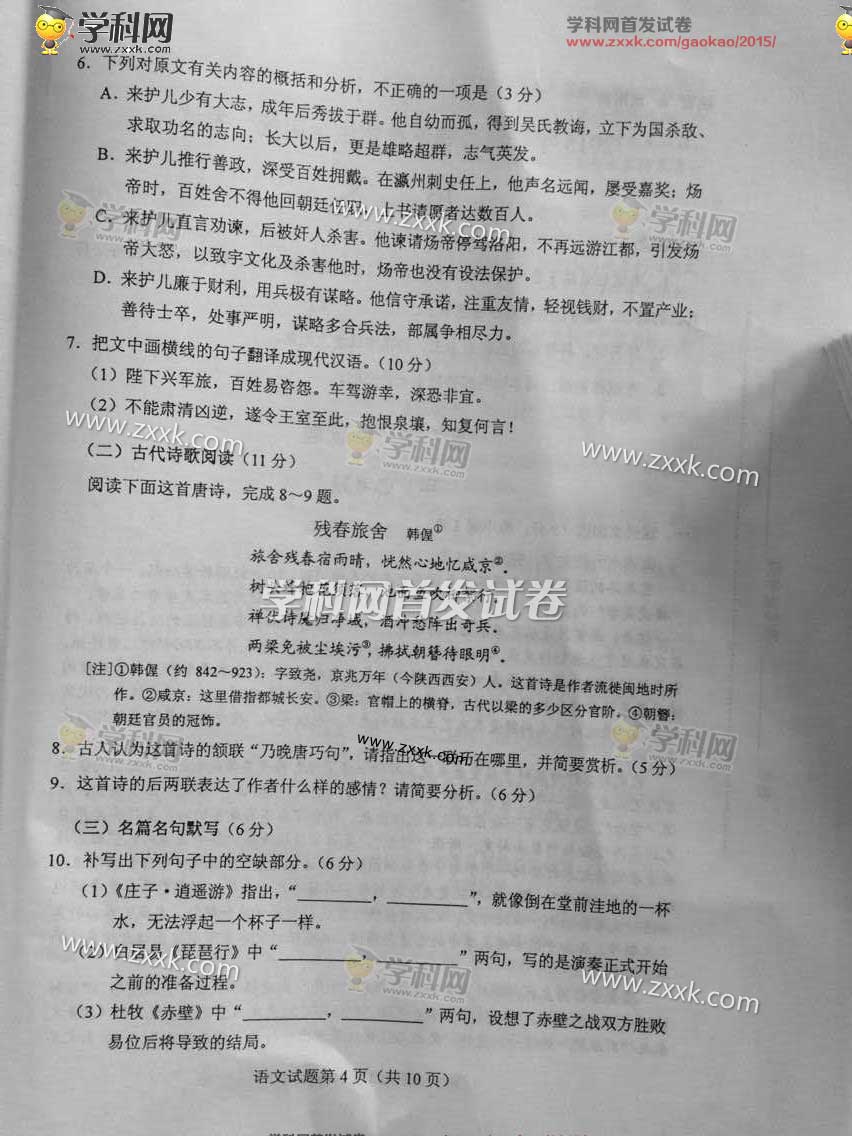 学科网
www.zxxk.com
学科网首发试卷
www.zxxk.com/gaokao/2015/
6．下列对原文有关内容的概括和分析，不正确的一项是（3 分）
A．来护儿少有大志，成年后秀拔于群。他自幼而孤，得到吴氏教诲，立下为国杀敌、
求取功名的志向；长大以后，更是雄略超群，志气英发。
B．来护儿推行善政，深受百姓拥戴。在瀛州刺史任上，他声名远闻，屡受嘉奖；炀
帝时，百姓舍不得他回朝廷 上书请愿者达数百人。
C．来护儿直言劝谏，后被奸人杀害。他谏请炀帝停驾洛阳，不再远游江都，引发炀
帝大怒，以致宇文化及杀害他时，炀帝也没有设法保护。
D．来护儿廉于财利，用兵极有谋略。他信守承诺，注重友情，轻视钱财，不置产业；
善待士卒，处事严明，谋略多合兵法，部属争相尽力。
7．把文中画横线的句子翻译成现代汉语。（10 分）
（1）陛下兴军旅，百姓易咨怨。车驾游幸，深恐非宜。
（2）不能肃清凶逆，遂令王室至此，抱恨泉壤，知复何言！
（二）古代诗歌阅读（11 分）
阅读下面这首唐诗，完成 8～9 题。
残春旅舍 韩偓①
旅舍残春宿雨晴，恍然心地忆咸京②。
树
禅伏诗魔归净域，酒冲愁阵出奇兵。
两梁免被尘埃污③，拂拭朝簪待眼明④。
[注]①韩偓（约 842～923）：字致尧，京兆万年（今陕西西安）人。这首诗是作者流徙闽地时所
作。②咸京：这里借指都城长安。③梁：官帽上的横脊，古代以梁的多少区分官阶。④朝簪：
朝廷官员的冠饰。
8．古人认为这首诗的颔联“乃晚唐巧句”，请指出这 巧 在哪里，并简要赏析。（5 分）
9．这首诗的后两联表达了作者什么样的感情？请简要分析。（6 分）
（三）名篇名句默写（6 分）
10．补写出下列句子中的空缺部分。（6 分）
（1）《庄子·逍遥游》指出，“________，________”，就像倒在堂前洼地的一杯
水，无法浮起一个杯子一样。
（2）白居易《琵琶行》中“________，________”两句，写的是演奏正式开始
之前的准备过程。
（3）杜牧《赤壁》中“________，________”两句，设想了赤壁之战双方胜败
易位后将导致的结局。
语文试题第 4 页（共 10 页）